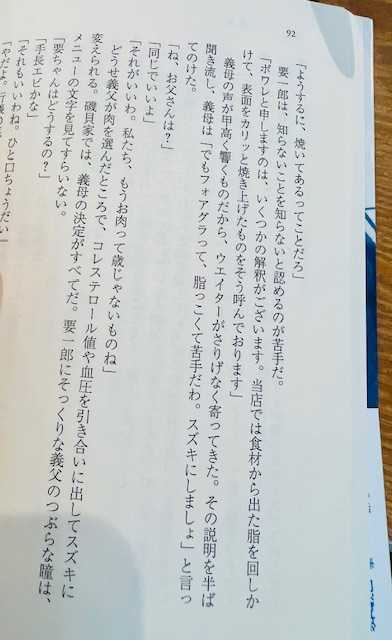 92
「ようするに、焼いてあるってことだろ」
要一郎は、知らないことを知らないと認めるのが苦手だ。
「ポワレと申しますのは、いくつかの解釈がございます。当店では食材から出た脂を回しか
けて、表面をカリッと焼き上げたものをそう呼んでおります」
義母の声が甲高く響くものだから、ウエイターがさりげなく寄ってきた。その説明を半ば
聞き流し、義母は「でもフォアグラって、脂っこくて苦手だわ。スズキにしましょ」と言っ
てのけた。
「ね、お父さんは？」
「同じでいいよ」
「それがいいわ。私たち、もうお肉って歳じゃないものね」
どうせ義父が肉を選んだところで、コレステロール値や血圧を引き合いに出してスズキに
変えられる。磯貝家では、義母の決定がすべてだ。要一郎にそっくりな義父のつぶらな瞳は、
メニューの文字を見てすらいない。
「要ちゃんはどうするの？」
「手長エビかな」
「それもいいわね。ひと口ちょうだい」